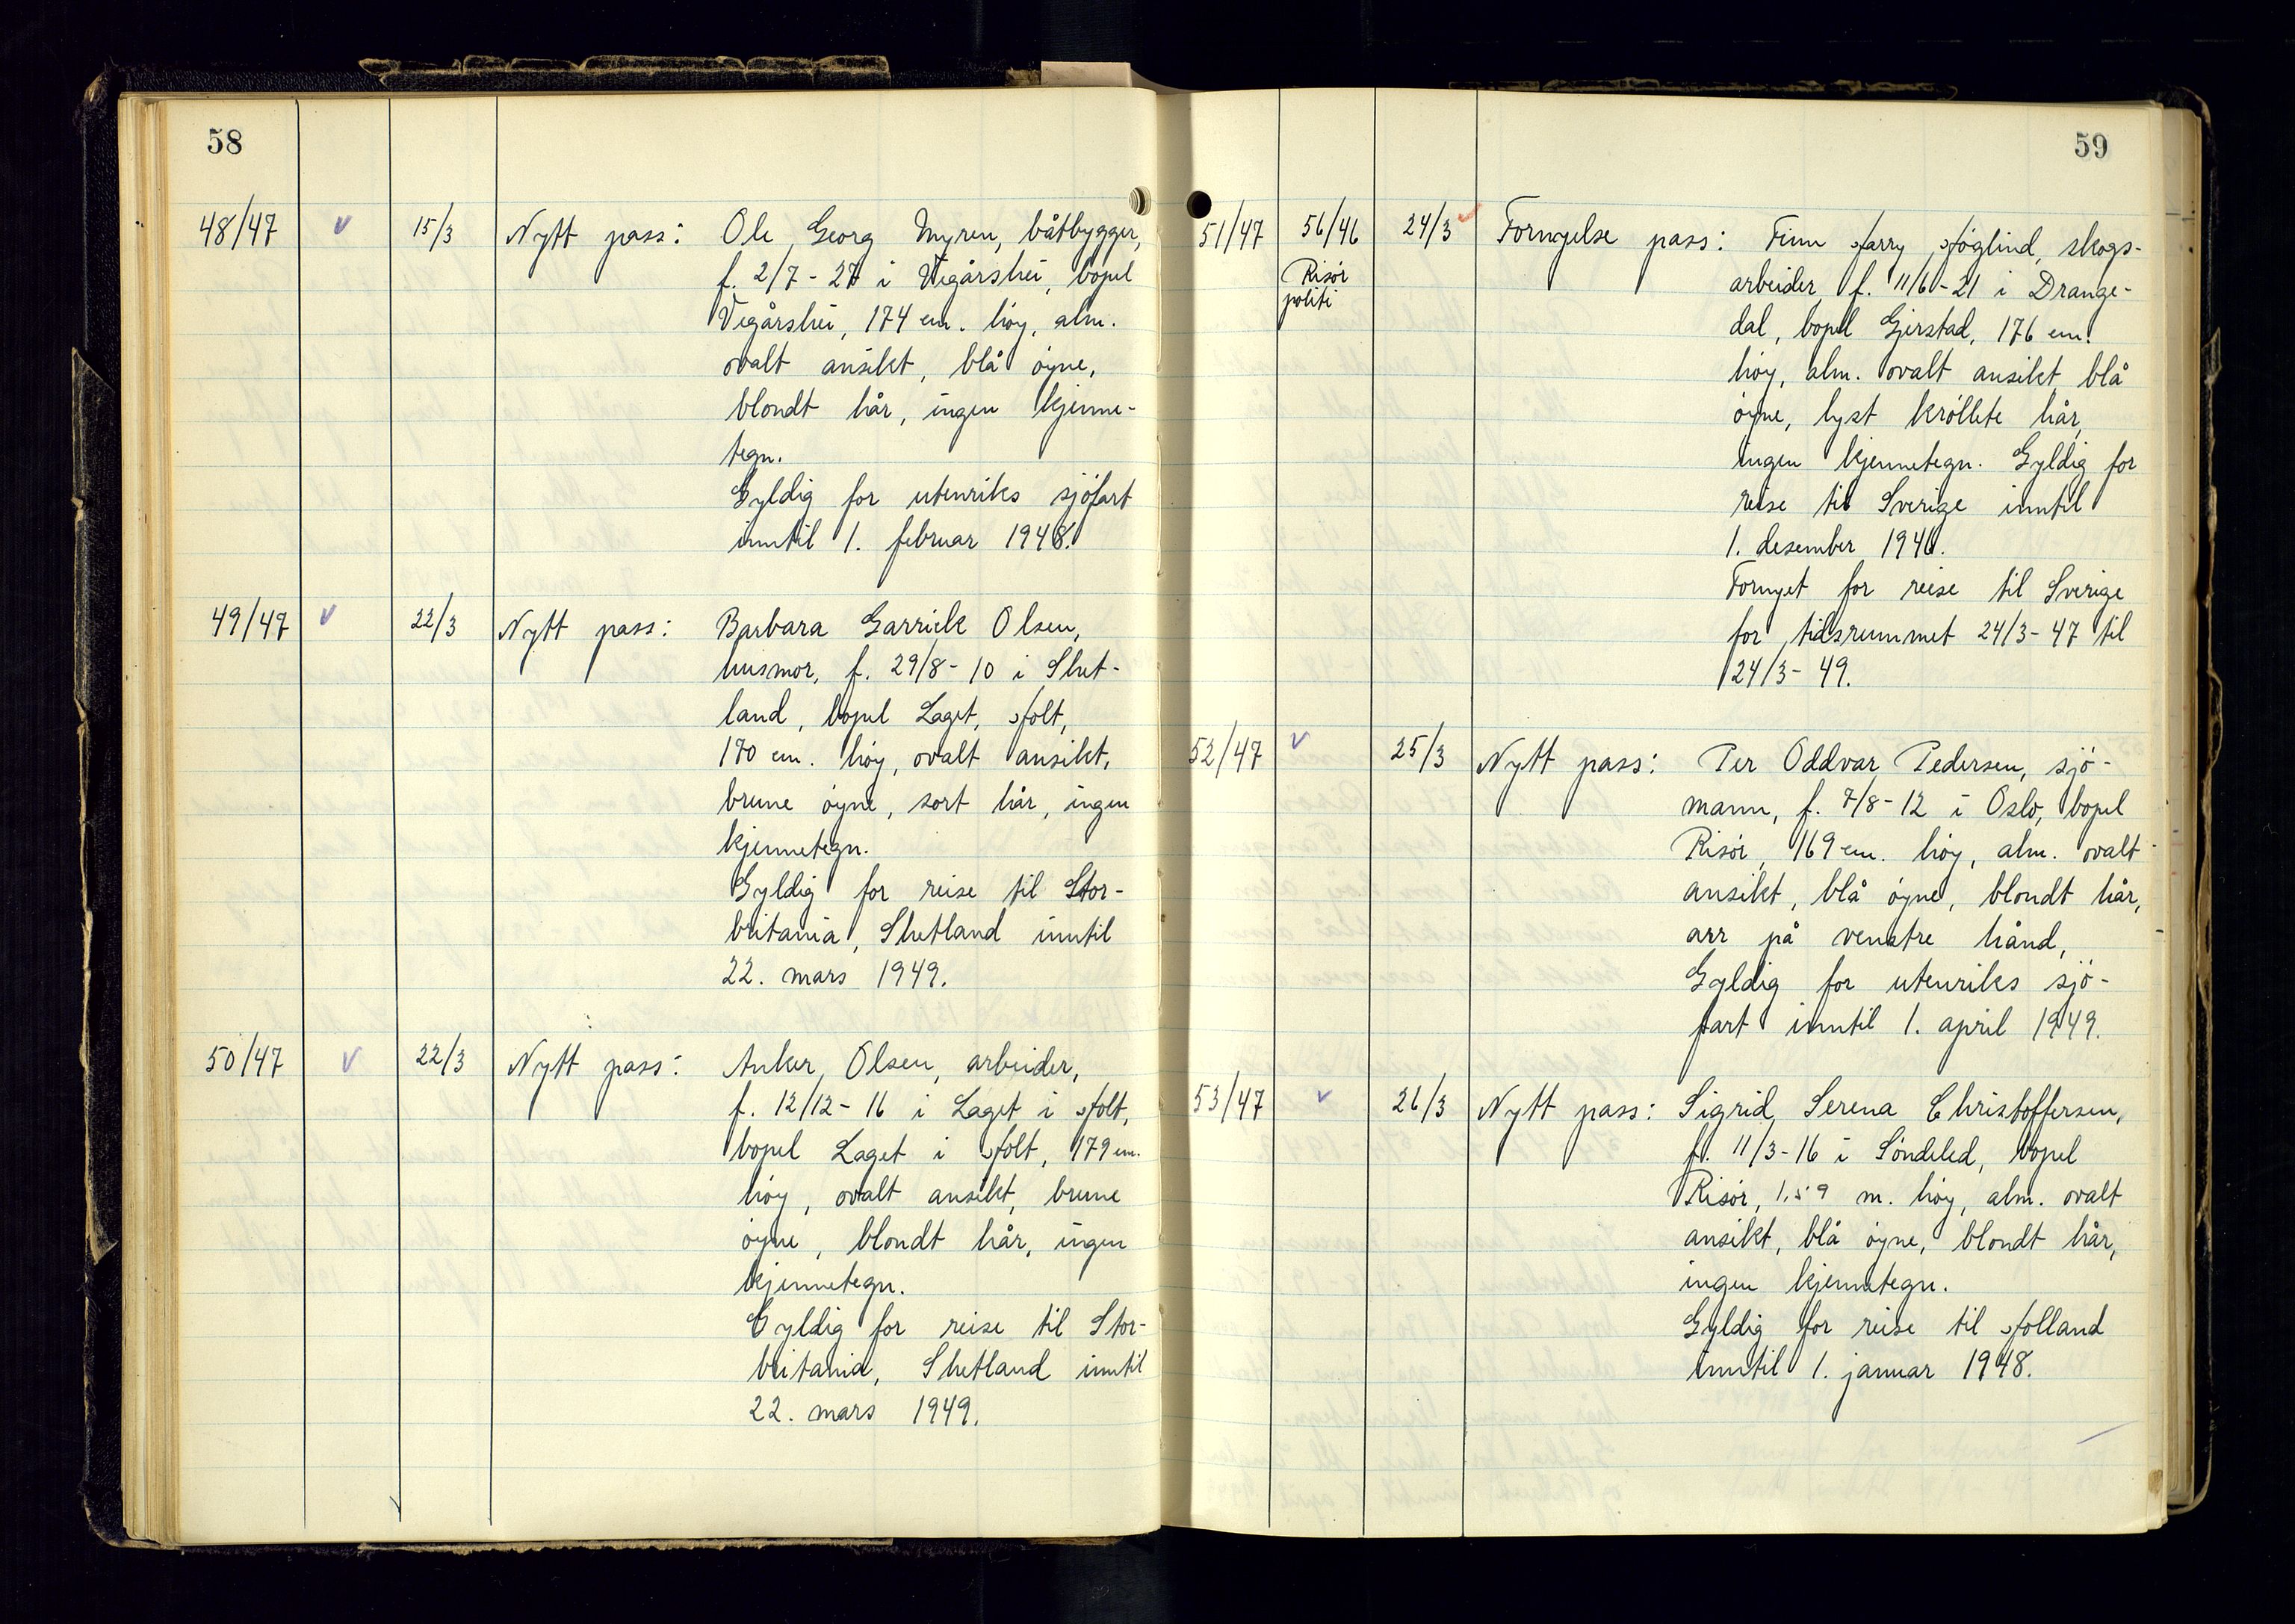 58
48/47 v 15/3 Nytt pass: Ole Georg Myren, båtbygger,
f. 2/7-27 i Vegårshei, bopel
Vegårshei, 174 cm. høy, alm.
ovalt ansikt, blå øyne,
blondt hår, ingen kjenne-
tegn.
Gyldig for utenriks sjöfart
inntil 1. februar 1948.
49/47 v 22/3 Nytt pass: Barbara Garrick Olsen,
husmor, f. 29/8-10 i Shet-
land, bopel Laget, Holt,
170 cm. høy, ovalt ansikt,
brune øyne, sort hår, ingen
kjennetegn.
Gyldig for reise til Stor-
britania, Shetland inntil
22. mars 1949.
50/47 v 22/3 Nytt pass: Anker Olsen, arbeider,
f. 12/12-16 i Laget i Holt,
bopel Laget i Holt, 179 cm.
høy, ovalt ansikt, brune
øyne, blondt hår, ingen
kjennetegn.
Gyldig for reise til Stor-
britania, Shetland inntil
22. mars 1949.
59
51/47 56/46 24/3 Fornyelse pass: Finn Harry Höglind, skogs-
Risør
politi
arbeider, f. 11/6-21 i Drange-
dal, bopel Gjerstad, 176 cm.
høy, alm. ovalt ansikt, blå
øyne, lyst krøllete hår,
ingen kjennetegn. Gyldig for
reise til Sverige inntil
1. desember 1946.
Fornyet for reise til Sverige
for tidsrummet 24/3-47 til
24/3-49.
52/47 v 25/3 Nytt pass: Per Oddvar Pedersen, sjö-
mann, f. 7/8-12 i Oslo, bopel
Risør, 169 cm. høy, alm. ovalt
ansikt, blå øyne, blondt hår,
arr på venstre hånd,
Gyldig for utenriks sjö-
fart inntil 1. april 1949.
53/47 v 26/3 Nytt pass: Sigrid Serena Christoffersen,
f. 11/3-16 i Søndeled, bopel
Risør, 1.59 m. høy, alm. ovalt
ansikt, blå øyne, blondt hår,
ingen kjennetegn.
Gyldig for reise til Holland
inntil 1. januar 1948.